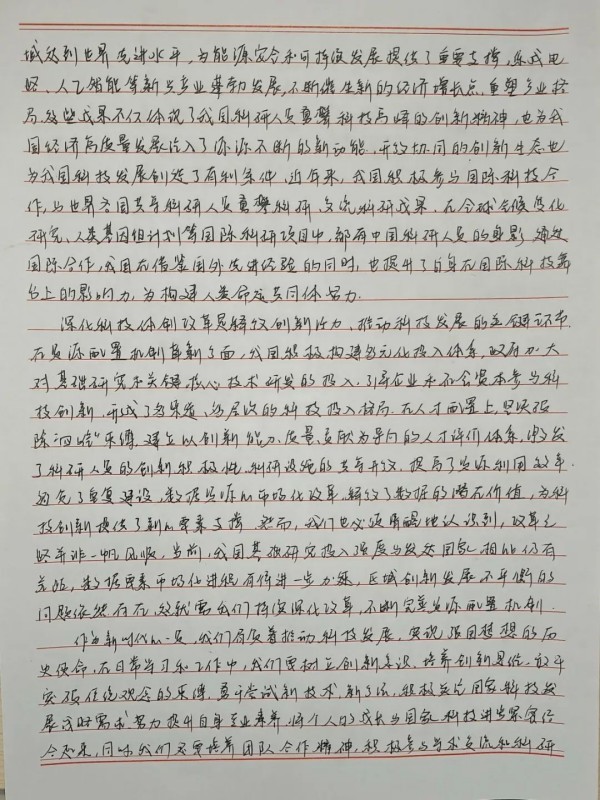 域达到世界先进水平，为能源安全和可持续发展提供了重要支撑，集成电
路、人工智能等新兴产业蓬勃发展，不断催生新的经济增长点，重塑产业格
局。这些成果不仅体现了我国科研人员勇攀科技高峰的创新精神，也为我
国经济高质量发展注入了源源不断的新动能。开放协同的创新生态也
为我国科技发展创造了有利条件。近年来，我国积极参与国际科技合
作，与世界各国共享科研人员勇攀科研、交流科研成果，在全球气候变化
研究、人类基因组计划等国际科研项目中，都有中国科研人员的身影。通过
国际合作，我国在借鉴国外先进经验的同时，也提升了自身在国际科技舞
台上的影响力，为构建人类命运共同体努力。
深化科技体制改革是释放创新活力、推动科技发展的关键环节。
在资源配置机制革新方面，我国积极构建多元化投入体系，政府加大
对基础研究和关键核心技术研发的投入，引导企业和社会资本参与科
技创新，形成了多渠道、多层次的科技投入格局。在人才配置上，坚决破
除“四唯”束缚，建立以创新能力、质量、贡献为导向的人才评价体系，激发
了科研人员的创新积极性。科研设施的共享开放，提高了资源利用效率，
避免了重复建设，数据资源的市场化改革，释放了数据的潜在价值，为科
技创新提供了新的要素支撑。然而，我们也必须清醒地认识到，改革之
路并非一帆风顺。当前，我国基础研究投入强度与发达国家相比仍有
差距，数据要素市场化进程有待进一步加速，区域创新发展不平衡的
问题依然存在，这就需我们持续深化改革，不断完善资源配置机制。
作为新时代的一员，我们肩负着推动科技发展、实现强国梦想的历
史使命。在日常学习和工作中，我们要树立创新意识，培养创新思维，敢于
突破传统观念的束缚，勇于尝试新技术、新方法，积极关注国家科技发
展战略需求，努力提升自身专业素养，将个人的成长与国家科技进步紧密结
合起来，同时我们还要培养团队合作精神，积极参与学术交流和科研